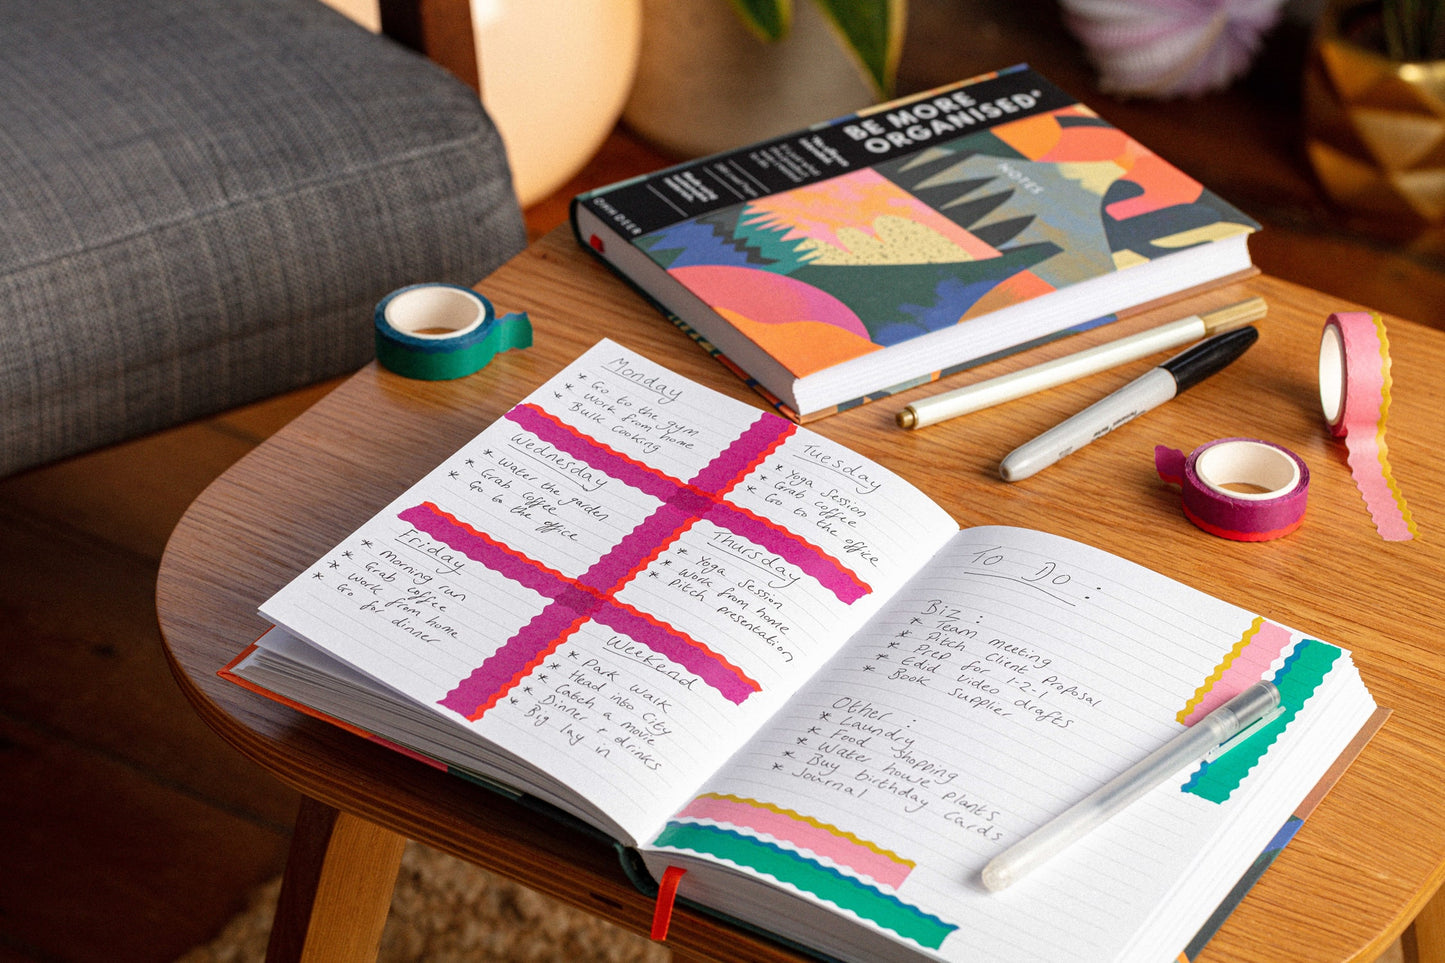 BE MORE
ORGANISED*
NOTES
Monday
* Go to the gym
* Work from home
* Bulk Cooking
Tuesday
* Yoga Session
* Grab coffee
* Go to the office
Wednesday
* Water the garden
* Grab coffee
* Go to the office
Thursday
* Yoga Session
* Work from home
* Pitch presentation
Friday
* Morning run
* Grab coffee
* Work from home
* Go for
dinner
Weekend
* Park Walk
* Head into City
* Catch a movie
* Dinner + drinks
* Big lay in
TO DO :
Biz :
* Team meeting
* Pitch Client Proposal
* Prep for 1-2-1
* Edid video drafts
* Book supplier
Other :
* Laundry
* Food Shopping
* Water house plants
* Buy birthday Cards
* Journal